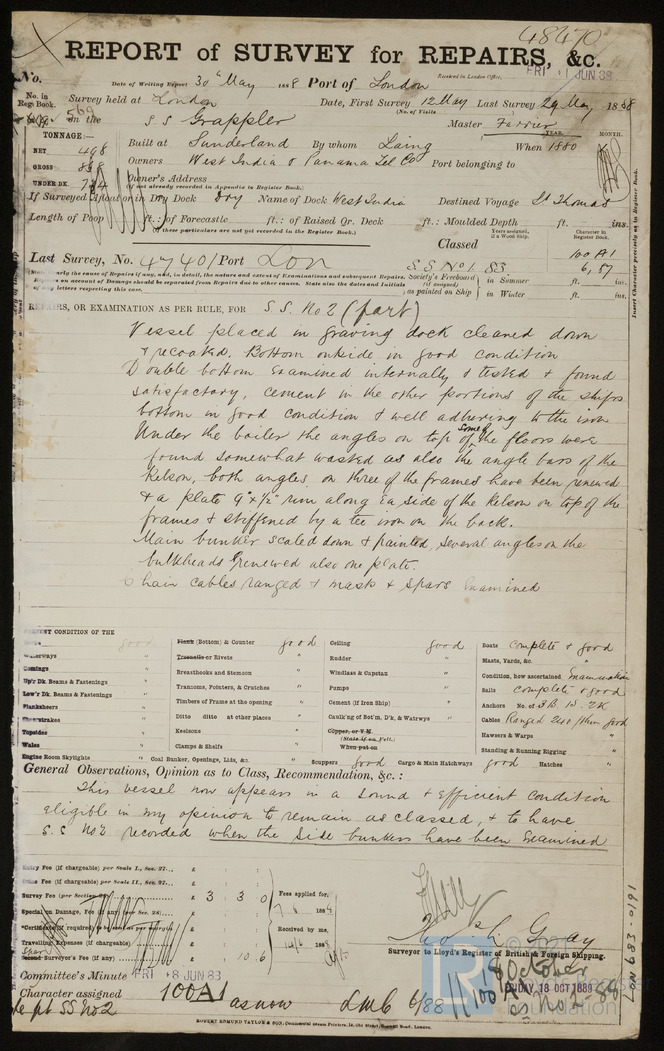 48470
REPORT of SURVEY for REPAIRS, &c.
No.
Date of Writing Report 30th May 1888 Port of London
Received in London Office, FRI 1 JUN 88
No. in Reg. Book.
Survey held at London
Date, First Survey 12 May Last Survey 29 May 1888
(No. of Visits
569 on the S S Grappler
Master Farrier
TONNAGE:—
YEAR. MONTH.
NET 498
Built at Sunderland By whom Laing When 1880
GROSS 868
Owners West India & Panama Tel Co Port belonging to
UNDER DK. 724
Owner's Address
(if not already recorded in Appendix to Register Book.)
If Surveyed Afloat or in Dry Dock Dry Name of Dock West India Destined Voyage St Thomas
Length of Poop ft.: of Forecastle ft.: of Raised Qr. Deck ft.: Moulded Depth ft. ins.
(if these particulars are not yet recorded in the Register Book.)
Years assigned, if a Wood Ship.
Character in Register Book.
Classed 100 A1
Last Survey, No. 4740 / Port Lon
S.S. No 1. 83 6, 87
Society's Freeboard (if assigned) as painted on Ship
in Summer ft. ins.
in Winter ft. ins.
Insert Character precisely as in Register Book.
REPAIRS, OR EXAMINATION AS PER RULE, FOR S.S. No 2 (part)
Vessel placed in graving dock cleaned down
& recoated. Bottom outside in good condition
Double bottom examined internally & tested & found
satisfactory, cement in the other portions of the ships
bottom in good condition & well adhering to the iron
Under the boiler the angles on top of some of the floors were
found somewhat wasted as also the angle bars of the
Kelson, both angles on three of the frames have been renewed
& a plate 9" x 1/2" run along ea side of the Kelson on top of the
frames & stiffened by a tee iron on the back.
Main bunker scaled down & painted, several angles on the
bulkheads renewed also one plate.
Chain cables ranged & masts & spars examined
PRESENT CONDITION OF THE
good
Waterways "
Comings "
Up'r Dk. Beams & Fastenings "
Low'r Dk. Beams & Fastenings "
Planksheers "
Sheerstrakes "
Topsides "
Wales "
Engine Room Skylights "
Plank (Bottom) & Counter good
Treenails or Rivets "
Breasthooks and Stemson "
Transoms, Pointers, & Crutches "
Timbers of Frame at the opening "
Ditto ditto at other places "
Keelsons "
Clamps & Shelfs "
Coal Bunker, Openings, Lids, &c. "
Ceiling good
Rudder "
Windlass & Capstan "
Pumps "
Cement (if Iron Ship) "
Caulk'ng of Bot'm, D'k, & Watrwys "
Copper, or Y.M.
(State if on Felt.)
When put on
Scuppers good Cargo & Main Hatchways good Hatches "
Boats complete & good
Masts, Yards, &c. "
Condition, how ascertained Examination
Sails complete & good
Anchors No. of 3B, 1S, 2K
Cables Ranged good
Hawsers & Warps "
Standing & Running Rigging "
General Observations, Opinion as to Class, Recommendation, &c.:
This vessel now appears in a sound & efficient condition
eligible in my opinion to remain as classed, & to have
S.S No 2 recorded when the side bunkers have been examined
Entry Fee (if chargeable) per Scale I., Sec. 27... £ : :
Survey Fee (per Section £ 3 : 3 : 0
Special on Damage, Fee (if any) (per Sec. 28)... £ : :
Travelling Expenses (if chargeable) £ : :
Second Surveyor's Fee (if any) £ : 10 . 6
Fees applied for, 7/6 1888
Received by me, 14/6 1888
Thos. L. Gray
Surveyor to Lloyd's Register of British & Foreign Shipping.
Committee's Minute FRI 8 JUN 88
Character assigned 100A1 as now
S.S No 2
LMC 6/88
October
FRIDAY, 18 OCT 1889
100 A1
SS No 2 - 88
ROBERT EDMUND TAYLOR & SON, Commercial Steam Printers, 19, Old Street, Goswell Road, London.
LR Foundation